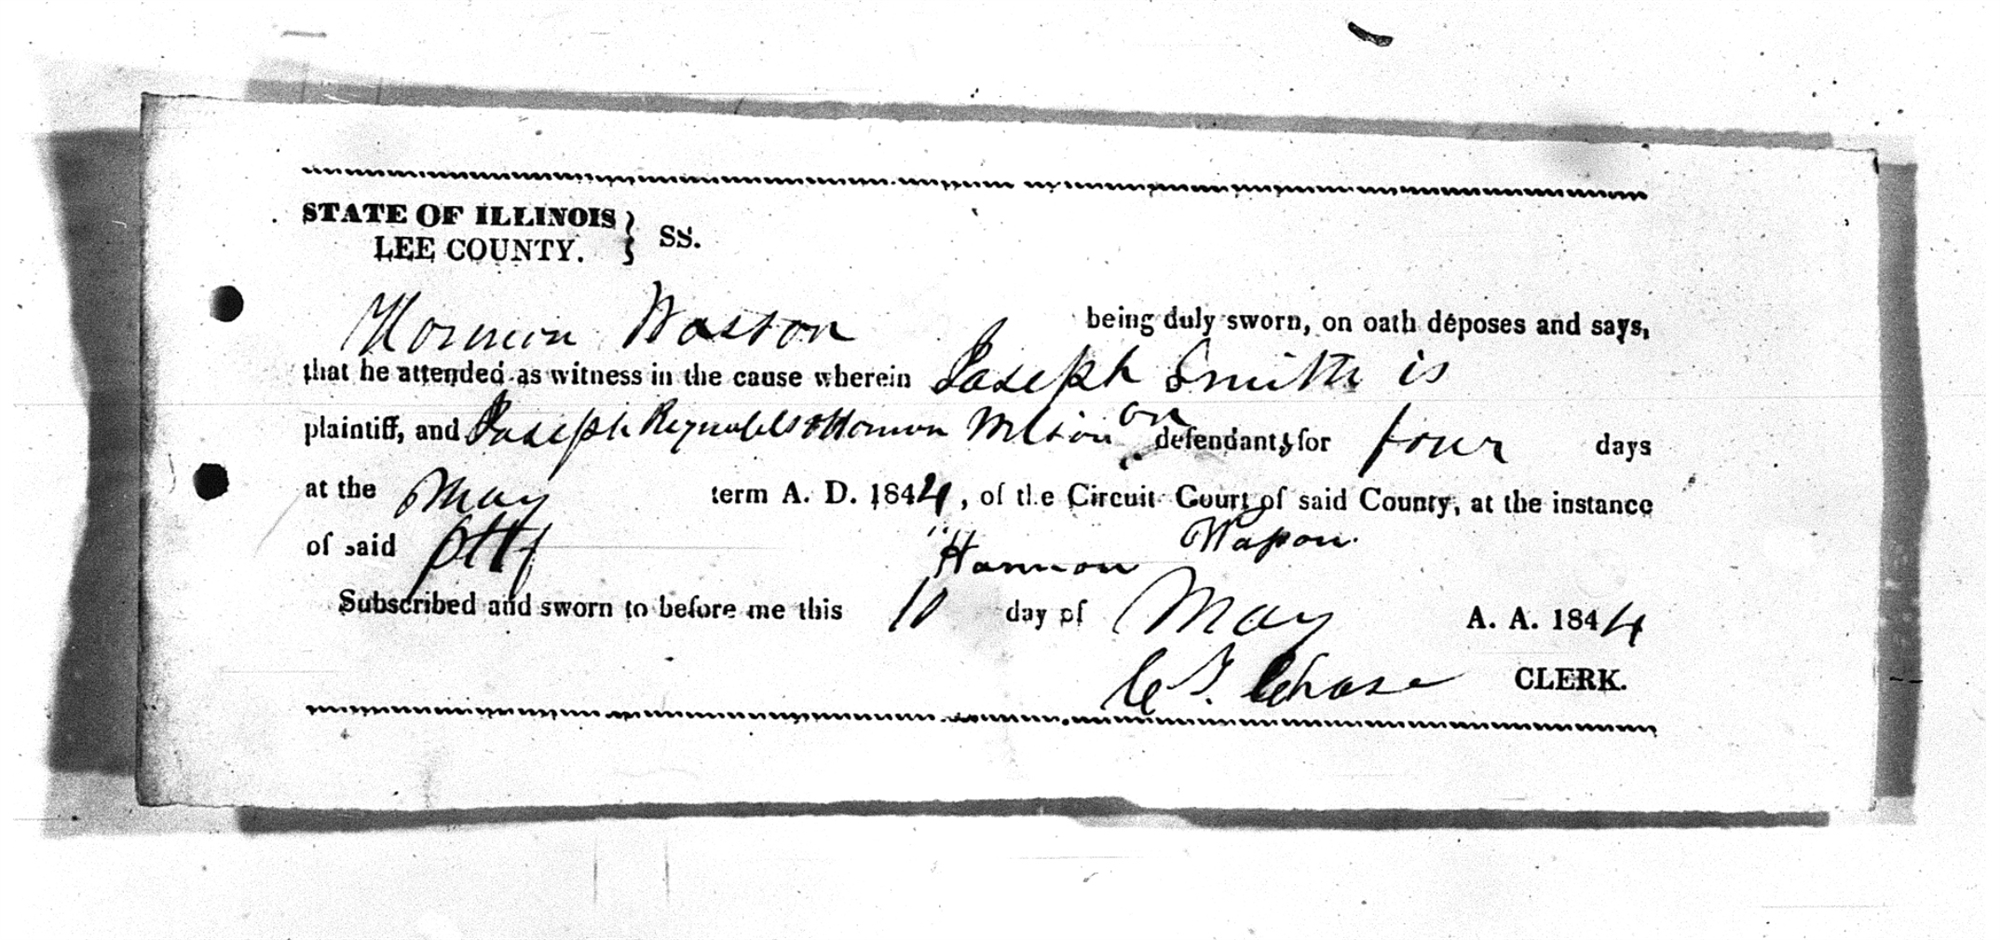 STATE OF ILLINOIS } SS.
LEE COUNTY. }
Hormon Wasson being duly sworn, on oath deposes and says,
that he attended as witness in the cause wherein Joseph Smith is
plaintiff, and Joseph Reynolds & Hormon Wilson are defendants for four days
at the May term A. D. 1844, of the Circuit Court of said County, at the instance
of said Pltf
Harmon Wasson
Subscribed and sworn to before me this 10 day of May A. A. 1844
C. T. Chase CLERK.